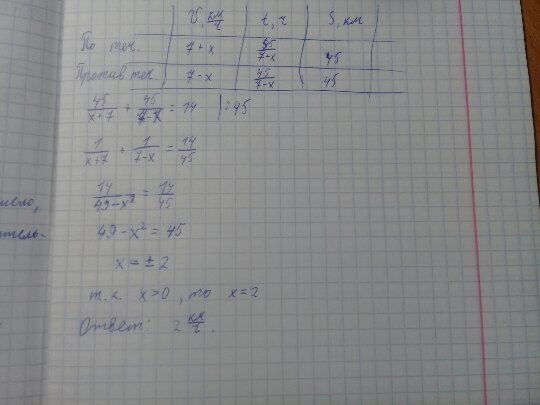 V, км/ч t, ч S, км
По теч. 7+x 45/(7+x) 45
Против теч. 7-x 45/(7-x) 45
45/(x+7) + 45/(7-x) = 14 |:45
1/(x+7) + 1/(7-x) = 14/45
14/(49-x²) = 14/45
49-x² = 45
x = ±2
т.к. x>0, то x=2
Ответ: 2 км/ч.